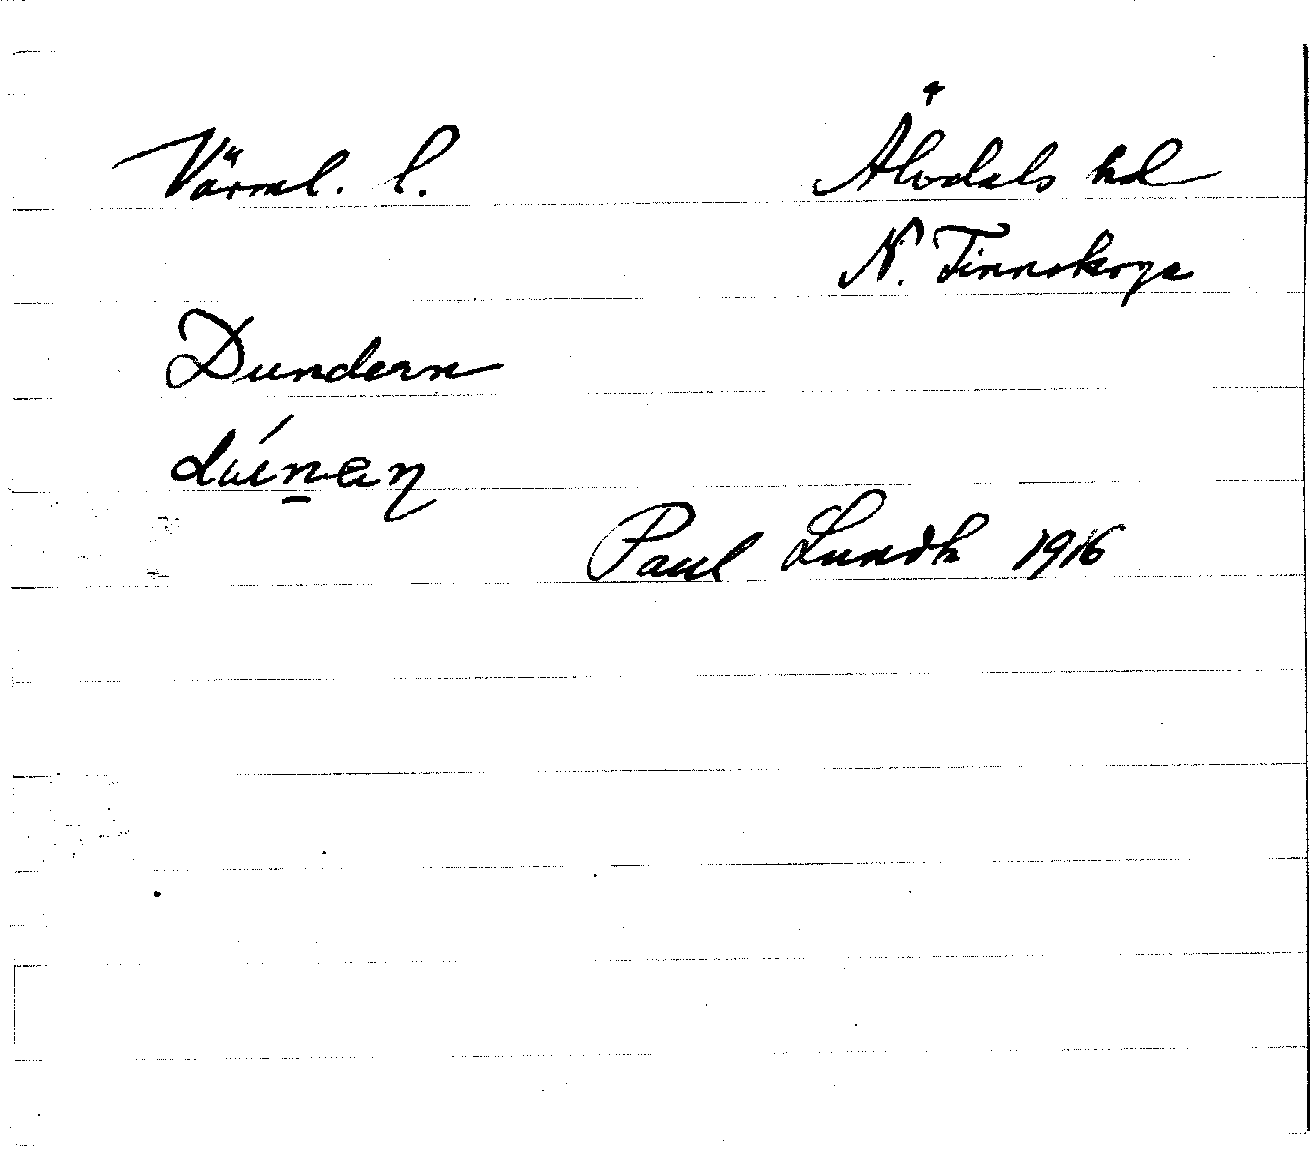 Värml. l.
Älvdals hd
N. Finnskoga
Dundern
Paul Lundh 1916